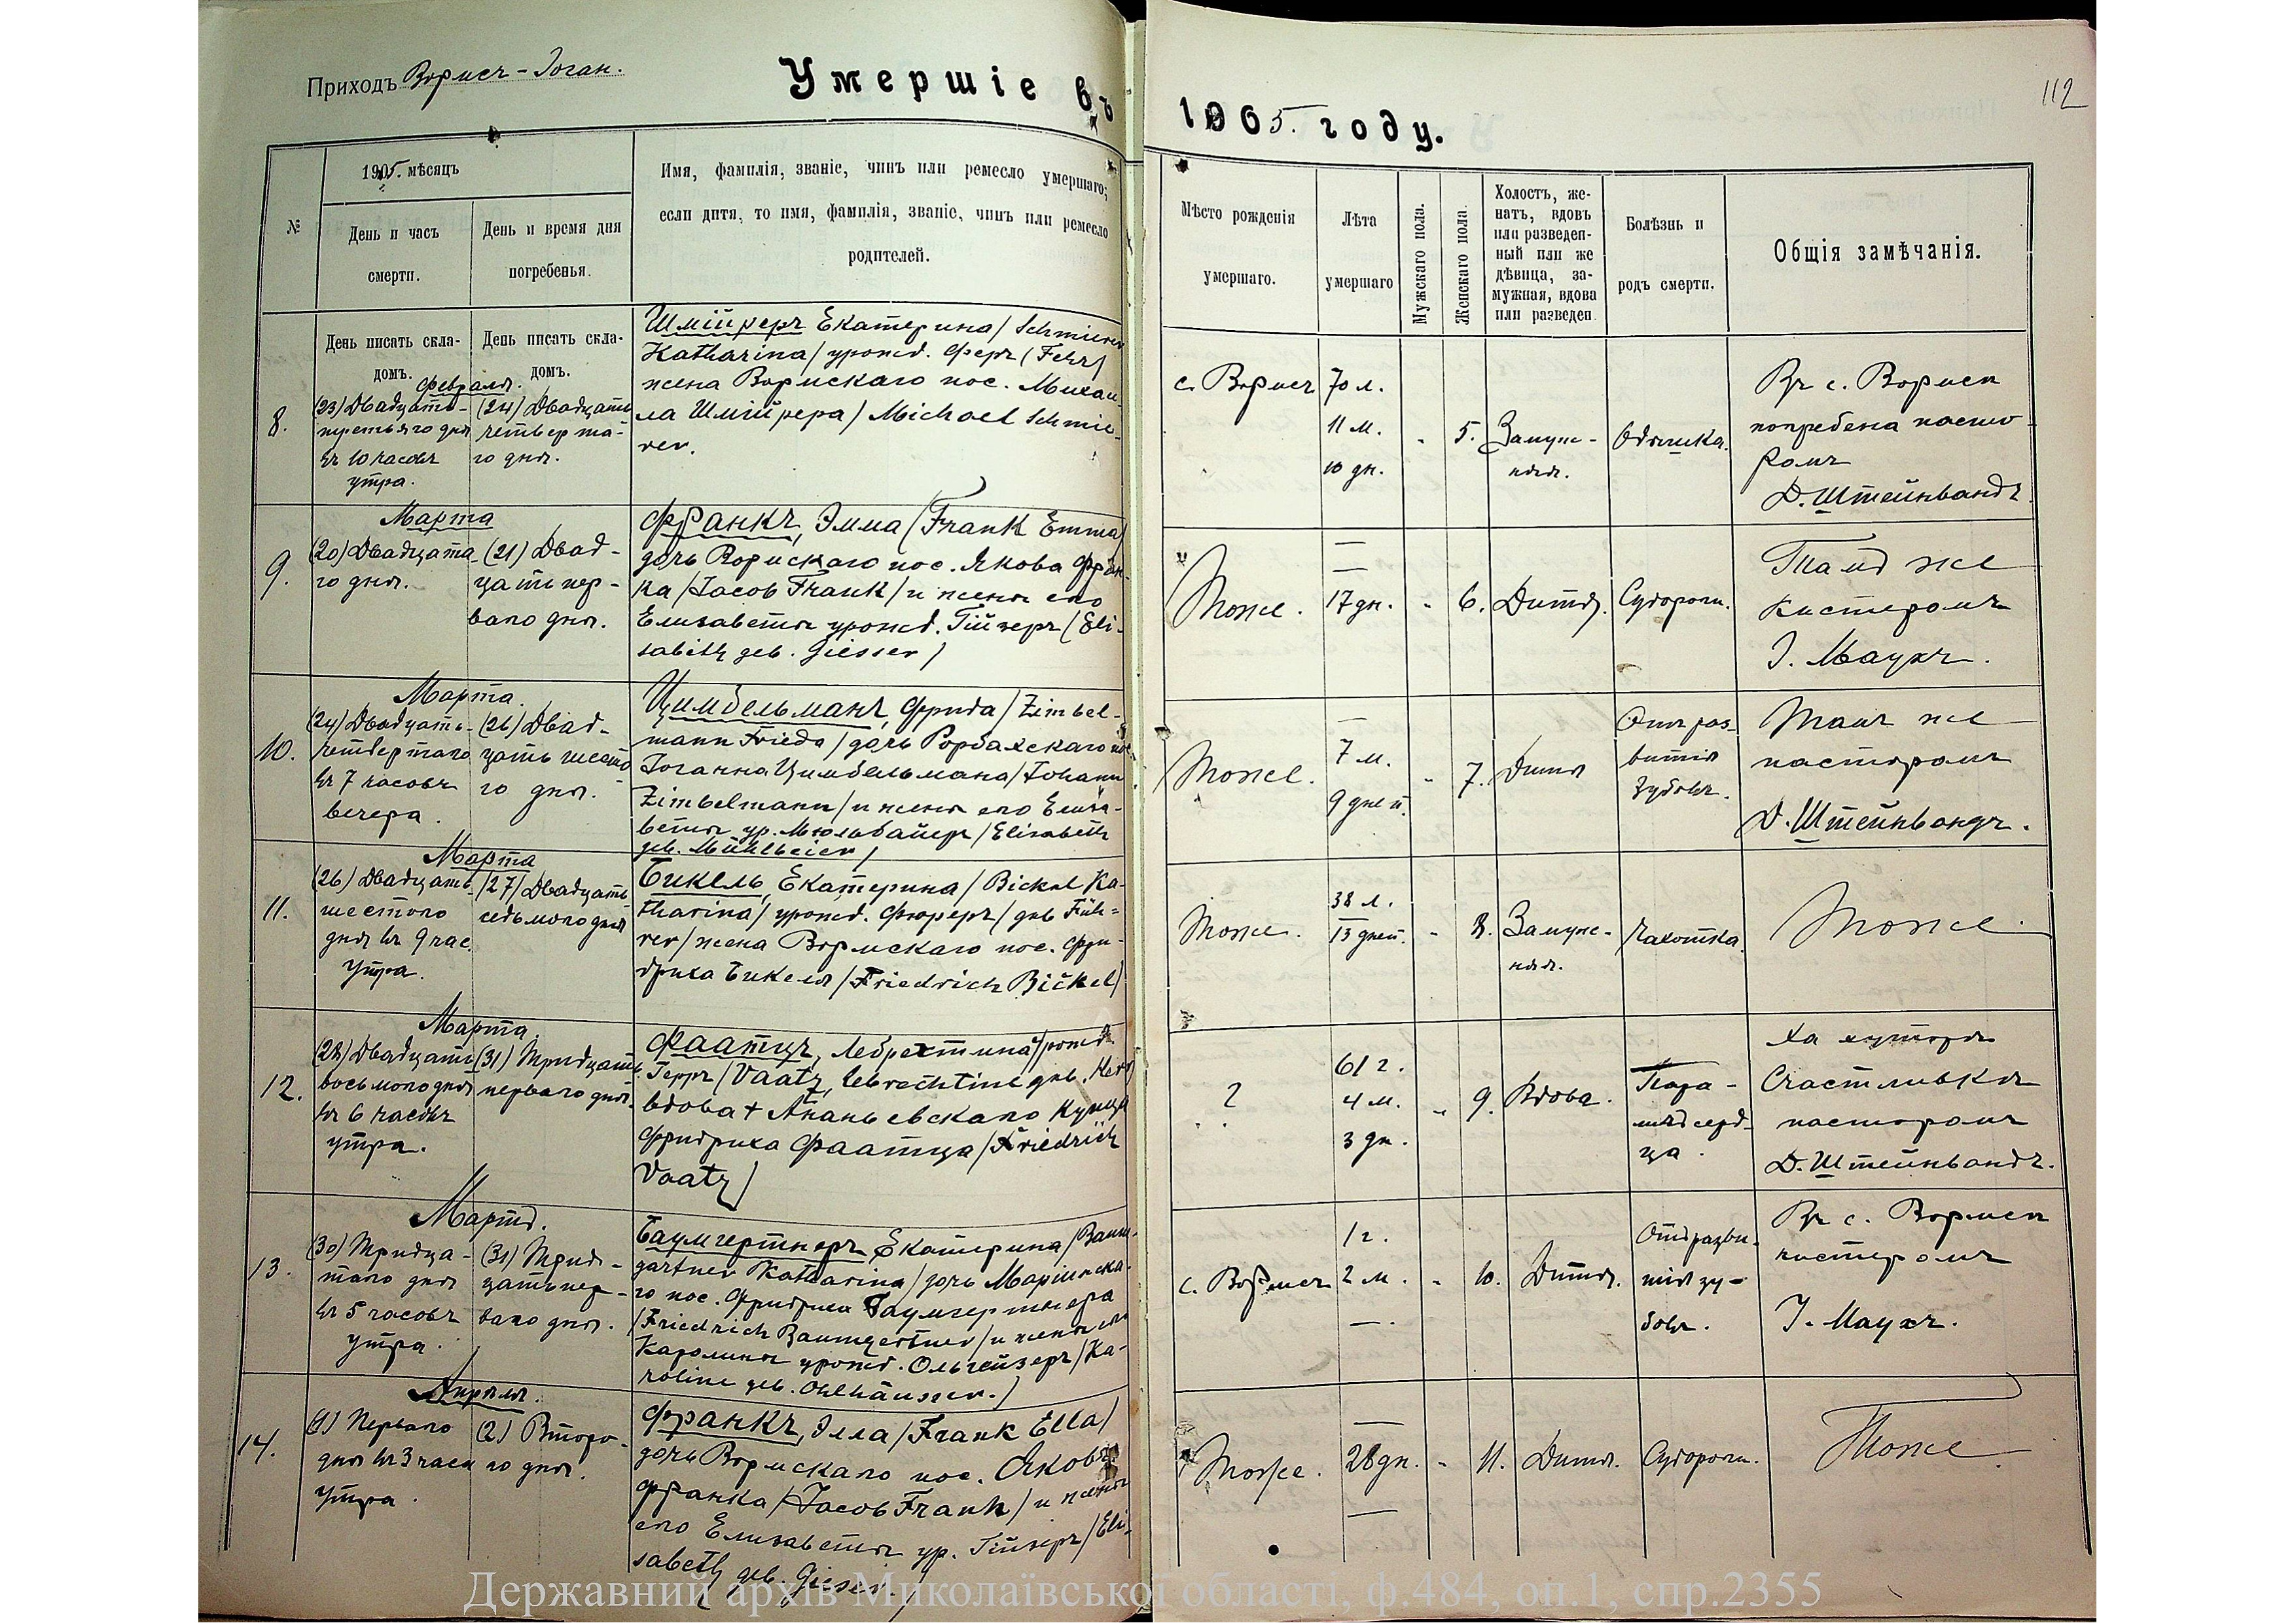 Приходъ Вормсъ-Іоган.
Умершіе въ
1905. году.
112
№
1905. мѣсяцъ
День и часъ
смерти.
День и время дня
погребенья.
Имя, фамилія, званіе, чинъ или ремесло умершаго;
если дитя, то имя, фамилія, званіе, чинъ или ремесло
родителей.
Мѣсто рожденія
умершаго.
Лѣта
умершаго
Мужскаго пола.
Женскаго пола.
Холостъ, же-
натъ, вдовъ
или разведен-
ный или же
дѣвица, за-
мужная, вдова
или разведен
Болѣзнь и
родъ смерти.
Общія замѣчанія.
День писать скла-
домъ.
День писать скла-
домъ.
Февраля.
8.
(23) Двадцать-
третьяго дня
въ 10 часовъ
утра.
(24) Двадцать
четверта-
го дня.
Шмійреръ Екатерина / Schmierer
Katharina / урожд. Феръ (Fehr)
жена Вормскаго пос. Михаи-
ла Шмійрера / Michael Schmie-
rer.
с. Вормсъ
70 л.
11 м.
10 дн.
5.
Замуж-
няя.
Одышка.
Въ с. Вормсъ
погребена пасто-
ромъ
Д. Штейнвандъ.
Марта
9.
(20) Двадцата-
го дня.
(21) Двад-
цать пер-
ваго дня.
Франкъ, Эмма (Frank Emma)
дочь Вормскаго пос. Якова Фран-
ка / Jacob Frank / и жены его
Елизаветы урожд. Гійзеръ (Eli-
sabeth geb. Giesser)
Тоже.
17 дн.
6.
Дитя.
Судороги.
Тамъ же
кистеромъ
І. Маухъ.
Марта.
10.
(24) Двадцать-
четвертаго
въ 7 часовъ
вечера.
(26) Двад-
цать шесто
го дня.
Цимбельманъ, Фрида / Zimbel-
mann Frieda / дочь Рорбахскаго пос.
Іоганна Цимбельмана / Johann
Zimbelmann / и жены его Елиза-
веты ур. Мюльбайеръ / Elisabeth
geb. Mühlbeier /
Тоже.
7 м.
9 дней.
7.
Дитя
Отъ раз-
витія
зубовъ.
Тамъ же
пасторомъ
Д. Штейнвандъ.
Марта
11.
(26) Двадцать-
шестого
дня въ 9 час.
утра.
(27) Двадцать
седьмого дня
Бикель, Екатерина / Bickel Ka-
tharina / урожд. Фюреръ / geb Füh-
rer / жена Вормскаго пос. Фри-
дриха Бикеля / Friedrich Bickel /
Тоже.
38 л.
13 дней.
8.
Замуж-
няя.
Чахотка.
Тоже.
Марта.
12.
(28) Двадцать
восьмого дня
въ 6 часовъ
утра.
(31) Тридцать
перваго дня.
Фаатцъ, Лебрехтина урожд.
Герръ / Vaatz, Lebrechtine geb. Herr
вдова + Ананьевскаго Купца
Фридриха Фаатца / Friedrich
Vaatz /
?
61 г.
4 м.
3 дн.
9.
Вдова.
серд-
ца.
На хуторѣ
Счастливкѣ
пасторомъ
Д. Штейнвандъ.
Марта.
13.
(30) Тридца-
таго дня
въ 5 часовъ
утра.
(31) Трид-
цать пер-
ваго дня.
Баумгертнеръ, Екатерина / Baum-
gärtner Katharina / дочь Маріинска-
го пос. Фридриха Баумгертнера
/ Friedrich Baumgertner / и жены его
Каролины урожд. Ольгейзеръ / Ka-
roline geb. Ohlhäusser. /
с. Вормсъ
1 г.
2 м.
10.
Дитя.
Отъ разви-
тія зу-
бовъ.
Въ с. Вормсъ
кистеромъ
І. Маухъ.
Апрѣля.
14.
(1) Перваго
дня въ 3 часа
утра.
(2) Второ-
го дня.
Франкъ, Элла / Frank Ella /
дочь Вормскаго пос. Якова
Франка / Jacob Frank / и жены
его Елизаветы ур. Гійзеръ / Eli-
sabeth geb. Gieser. /
Тоже.
28 дн.
11.
Дитя.
Судороги.
Тоже
Державний архів Миколаївської області, ф.484, оп.1, спр.2355